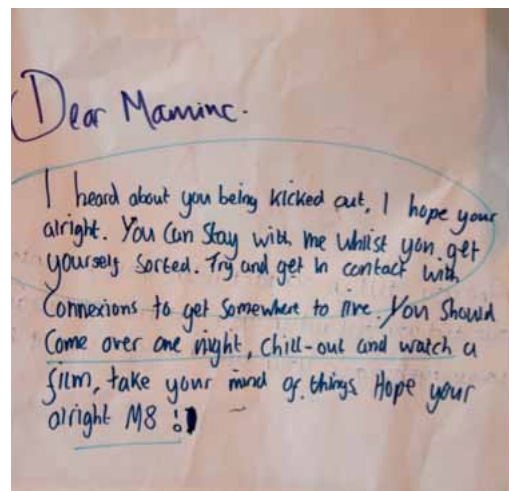 Dear Maminc.
I heard about you being kicked out, I hope your
alright. You Can Stay with me whilst you get
yourself Sorted. Try and get in contact with
Connexions to get Somewhere to live. You Should
Come over one night, chill-out and watch a
film, take your mind of things Hope your
alright M8 !